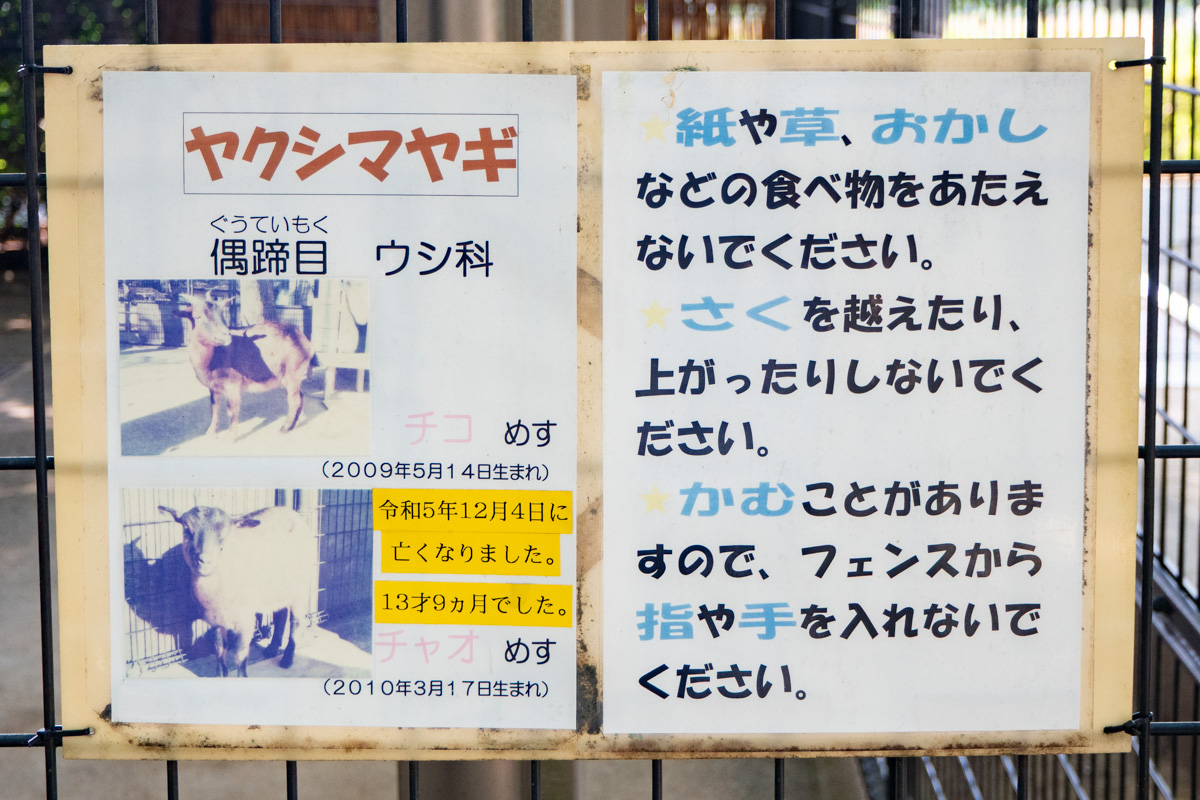 ヤクシマヤギ
ぐうていもく
偶蹄目 ウシ科
チコ めす
(2009年5月14日生まれ)
令和5年12月4日に
亡くなりました。
13才9ヵ月でした。
チャオ めす
(2010年3月17日生まれ)
★紙や草、おかし
などの食べ物をあたえ
ないでください。
★さくを越えたり、
上がったりしないでく
ださい。
★かむことがありま
すので、フェンスから
指や手を入れないで
ください。